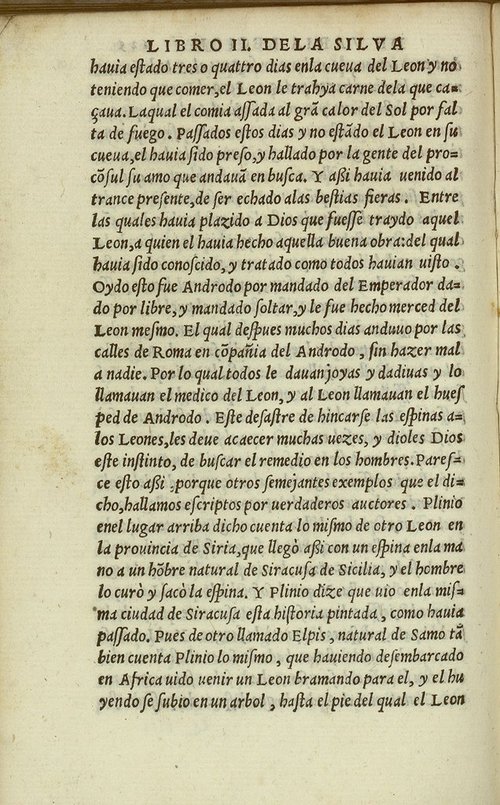 LIBRO II. DELA SILVA
havia eſtado tres o quattro dias enla cueva del Leon y no
teniendo que comer,el Leon le trahya carne dela que ca=
çava. Laqual el comia aſſada al grã calor del Sol por fal
ta de fuego. Paſſados eſtos dias y no eſtãdo el Leon en ſu
cueva,el havia ſido preſo,y hallado por la gente del pro=
cõſul ſu amo que andavã en buſca. Y aßi havia venido al
trance preſente,de ſer echado alas beſtias fieras. Entre
las quales havia plazido a Dios que fueſſe traydo aquel
Leon,a quien el havia hecho aquella buena obra:del qual
havia ſido conoſcido, y tratado como todos havian viſto.
Oydo eſto fue Androdo por mandado del Emperador da=
do por libre,y mandado ſoltar,y le fue hecho merced del
Leon meſmo. El qual deſpues muchos dias anduuo por las
calles de Roma en cõpañia del Androdo, ſin hazer mal
a nadie. Por lo qual todos le davan joyas y dadivas y lo
llamavan el medico del Leon, y al Leon llamavan el hueſ
ped de Androdo. Eſte deſaſtre de hincarſe las eſpinas a=
los Leones,les deve acaecer muchas vezes, y dioles Dios
eſte inſtinto, de buſcar el remedio en los hombres.Pareſ=
ce eſto aßi, porque otros ſemejantes exemplos que el di=
cho,hallamos eſcriptos por verdaderos auctores. Plinio
enel lugar arriba dicho cuenta lo miſmo de otro Leon en
la provincia de Siria,que llegò aßi con un eſpina enla ma
no a un hõbre natural de Siracuſa de Sicilia, y el hombre
lo curò y ſacò la eſpina. Y Plinio dize que vio enla miſ=
ma ciudad de Siracuſa eſta hiſtoria pintada, como havia
paſſado. Pues de otro llamado Elpis, natural de Samo tã
bien cuenta Plinio lo miſmo, que haviendo deſembarcado
en Africa vido venir un Leon bramando para el, y el hu
yendo ſe ſubio en un arbol, haſta el pie del qual el Leon